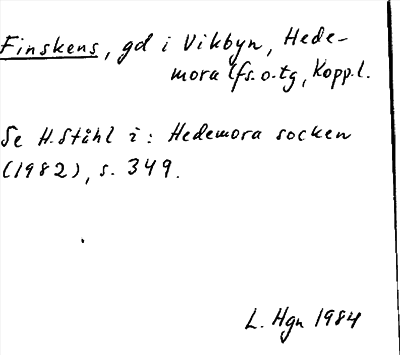 Finskens, gd i Vikbyn, Hede-
mora lfs. o. tg, Kopp. l.
Se H. Ståhl i: Hedemora socken
(1982), s. 349.
L. Hgn 1984